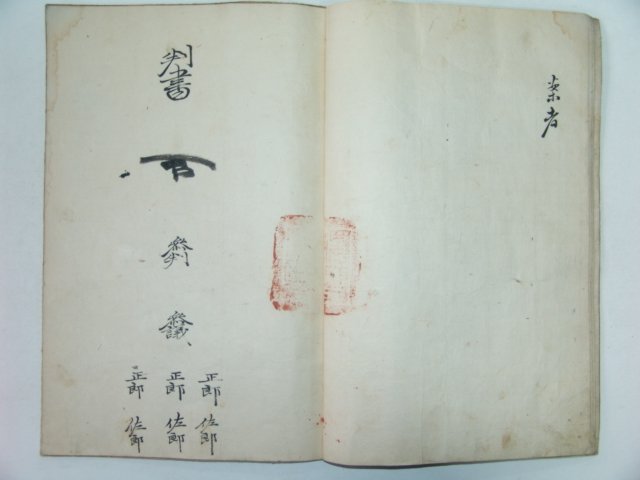 者
判書
參判
參議
正郎
正郎
正郎
佐郎
佐郎
佐郎